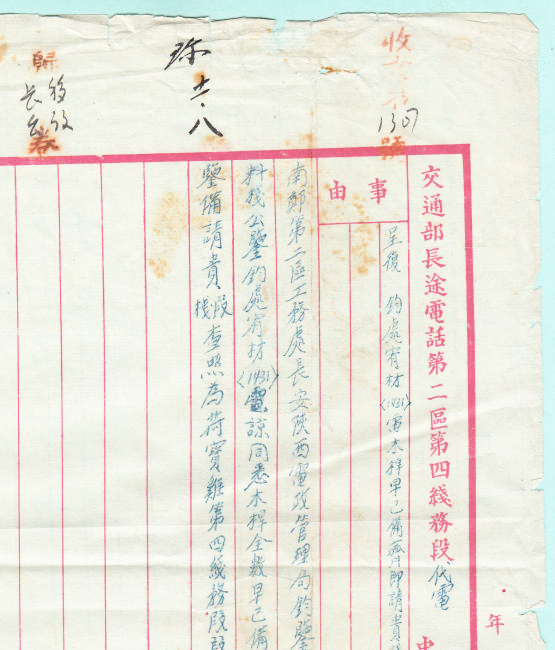 收文第1307號
交通部長途電話第二區第四綫務段代電
年
事由
呈復鈞處宥材(1931)電木桿早已備齊即請貴
南鄭第二區工務處長安陝西電政管理局鈞鑒
料棧公鑒鈞處宥材(1931)電諒同悉木桿全數早已備
鑒備請貴段棧查照為荷寶雞第四綫務段段
弥 十一.八
歸
卷